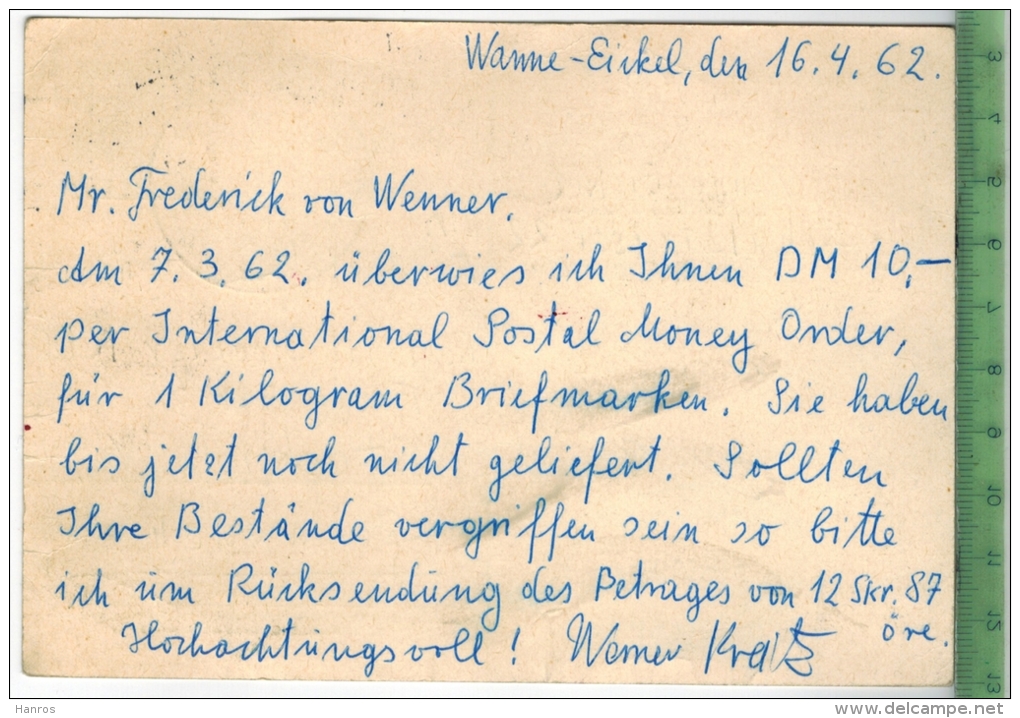 Wanne-Eickel, den 16.4.62.
Mr. Frederick von Wenner.
Am 7.3.62. überwies ich Ihnen DM 10,—
per International Postal Money Order,
für 1 Kilogram Briefmarken. Sie haben
bis jetzt noch nicht geliefert. Sollten
Ihre Bestände vergriffen sein so bitte
ich um Rücksendung des Betrages von 12 Skr. 87
öre.
Hochachtungsvoll! Werner
Hanros
www.delcampe.net